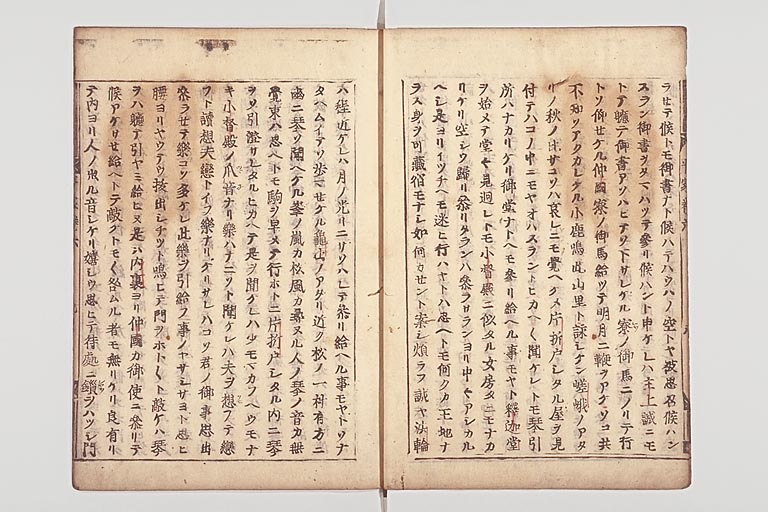 ラセテ候トモ御書ナト候ハテハウハノ空トヤ被思召候ハン
スラン御書ヲタマハツテ參リ候ハント申ケレハ主上誠ニモ
トテ軈テ御書アソハヒテソ下サレケル寮ノ御馬ニノリテ行
トソ仰セケル仲國寮ノ御馬給ツテ明月ニ鞭ヲアケソコ共
不知ソアクカレケル小鹿鳴此山里ト詠シケン嵯峨ノアタ
リノ秋ノ比サコソハ哀レニモ覺ヘケメ片折戸シタル屋ヲ見
付テハコノ中ニモヤオハスラントヒカヘ〱聞ケレトモ琴引
所ハナカリケリ御堂ナトヘモ參リ給ヘル事モヤト釋迦堂
ヲ始メテ堂々見廻レトモ小督殿ニ似タル女房タニモナカ
リケリ空シウ歸リ參リタランハ參ラサランヨリ中々アシカル
ヘシ是ヨリイツチヘモ迷ヒ行ハヤトハ思ヘトモ何クカ王地ナ
ラヌ身ヲ可藏宿モナシ如何カセント案シ煩ラフ誠ヤ法輪
ハ程近ケレハ月ノ光リニサソハレテ參リ給ヘル事モヤトソナ
タヘムイテソ歩マセケル龜山ノアタリ近ク松ノ一村有方ニ
幽ニ琴ソ聞ヘケル峯ノ嵐カ松風カ尋ヌル人ノ琴ノ音カ無
覺束ハ思ヘトモ駒ヲ早メテ行ホトニ片折戸シタル内ニ琴
ヲソ引澄サレタルヒカヘテ是ヲ聞ケレハ少モマカウヘウモナ
キ小督殿ノ爪音ナリ樂ハナニソト聞ケレハ夫ヲ想フテ戀
フト讀想夫戀トイフ樂ナリケリサレハコソ君ノ御事思出
參ラセテ樂コソ多ケレ此樂ヲ引給フ事ノヤサシサヨト思ヒ
腰ヨリヤウテウ抜出シチツト鳴ヒテ門ヲホト〱ト敲ケハ琴
ヲハ軈テ引ヤミ給ヒヌ是ハ内裏ヨリ仲國カ御使ニ參リテ
候アケサセ給ヘトテ敲クトモ〱咎ムル者モ無リケリ良有リ
テ内ヨリ人ノ出ル音シケリ嬉シウ思ヒテ待處ニ鎖ヲハツシ門